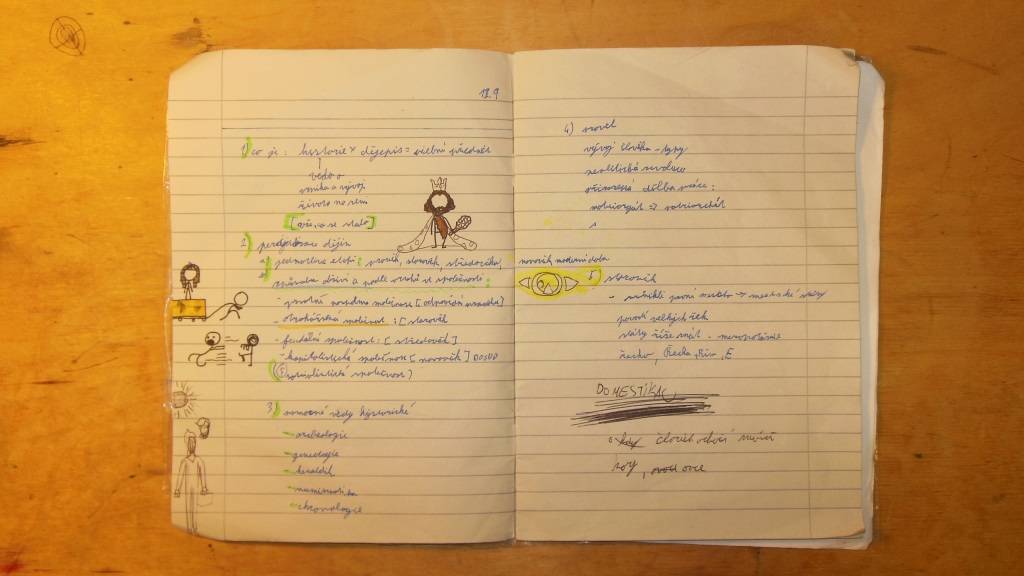 11.9
1) co je: historie × dějepis = učební předmět
věda o
vzniku a vývoji
života na zemi
[vše, co se stalo]
2) periodizace dějin
a) jednotlivé etapy: pravěk, starověk, středověk, novověk, moderní doba
způsobu obživy a podle vztahů ve společnosti:
- prvotně pospolná společnost [odpovídá pravěku]
- otrokářská společnost: [starověk
- feudální společnost: [středověk]
- kapitalistická společnost [novověk] DOSUD
(socialistická společnost)
3) pomocné vědy historické
- archeologie
- geneologie
- heraldik
- numismatika
- chronologie
4) pravěk
vývoj člověka - typy
neolitická revoluce
přirozená dělba práce:
matriarchát => patriarchát
5) starověk
- vznikli první města -> městské státy
povodí velkých řek
státy říše - mezopotámie
Řecko, Řím, E
DOMESTIKAC
člověk ochočí
, ovce